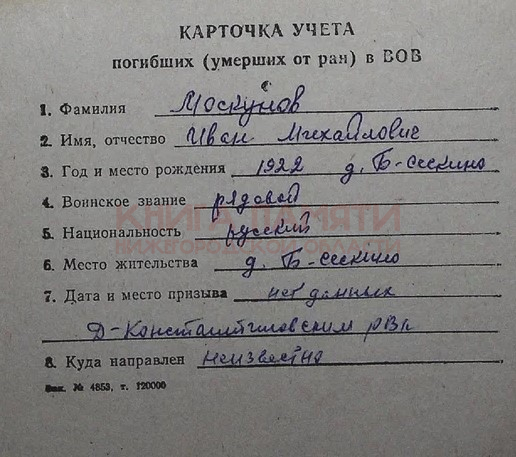 КАРТОЧКА УЧЕТА
погибших (умерших от ран) в ВОВ
1. Фамилия Москунов
2. Имя, отчество Иван Михайлович
3. Год и место рождения 1922 д. Б-Сескино
4. Воинское звание рядовой
КНИГА ПАМЯТИ
5. Национальность русский
НИЖЕГОРОДСКОЙ ОБЛАСТИ
6. Место жительства д. Б-Сескино
7. Дата и место призыва нет данных
Д-Константиновским рвк
8. Куда направлен неизвестно
Зак. № 4853, т. 120000